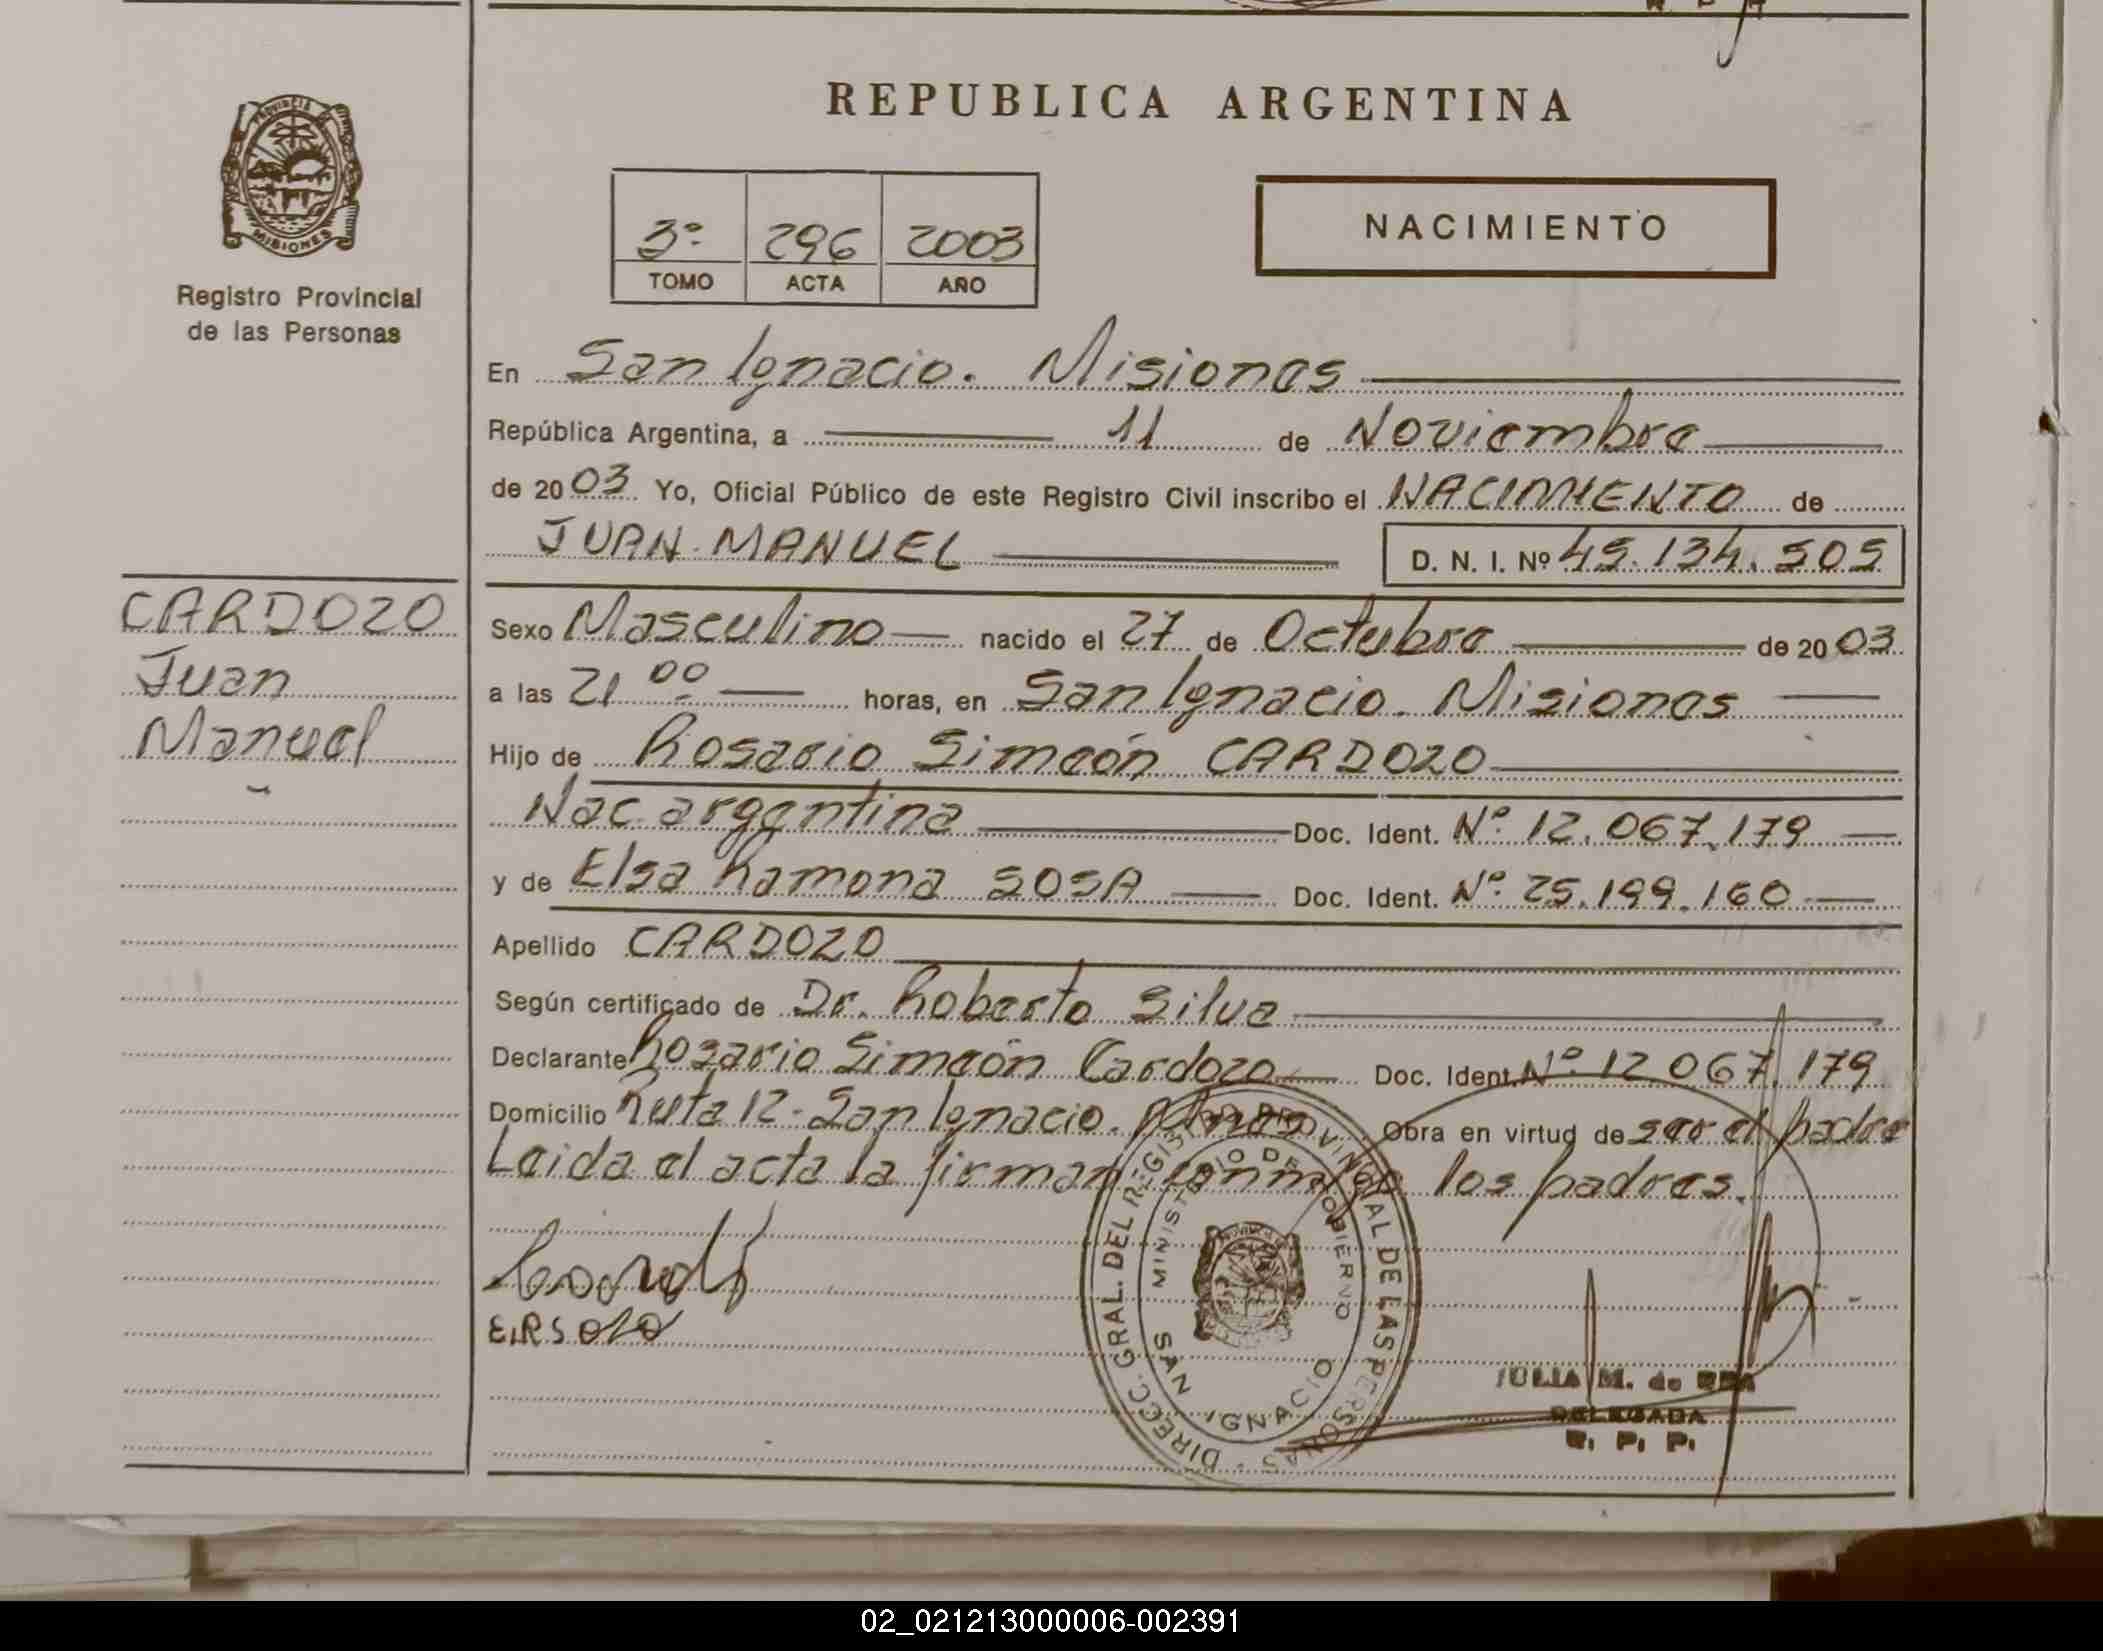 REPUBLICA ARGENTINA
PROVINCIA DE
MISIONES
Registro Provincial
de las Personas
3º 296 2003
TOMO ACTA AÑO
NACIMIENTO
En San Ignacio. Misiones
República Argentina, a 11 de Noviembre
de 2003 Yo, Oficial Público de este Registro Civil inscribo el NACIMIENTO de
JUAN MANUEL D. N. I. Nº 45.134.505
CARDOZO
Juan
Manuel
Sexo Masculino nacido el 27 de Octubre de 2003
a las 21 00 horas, en San Ignacio. Misiones
Hijo de Rosario Simeón CARDOZO
Nac. argentina Doc. Ident. Nº 12.067.179
y de Elsa Ramona SOSA Doc. Ident. Nº 25.199.160
Apellido CARDOZO
Según certificado de Dr. Roberto Silva
Declarante Rosario Simeón Cardozo Doc. Ident. Nº 12.067.179
Domicilio Ruta 12 - San Ignacio. Mnes Obra en virtud de ser el padre
Leida el acta la firman conmigo los padres.
DIRECC. GRAL. DEL REGISTRO PROVINCIAL DE LAS PERSONAS
MINISTERIO DE GOBIERNO
SAN IGNACIO
JULIA M. de
DELEGADA
R. P. P.
02_021213000006-002391